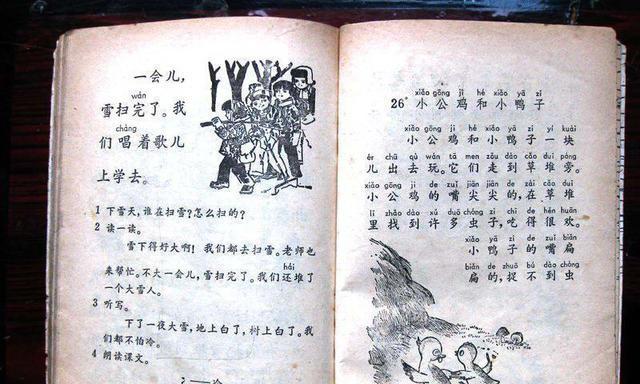 一会儿，
wán
雪扫完了。我
chàng
们唱着歌儿
上学去。
1 下雪天，谁在扫雪？怎么扫的？
2 读一读。
雪下得好大啊！我们都去扫雪。老师也
hái
来帮忙。不大一会儿，雪扫完了。我们还堆了
一个大雪人。
3 听写。
下了一夜大雪，地上白了，树上白了。我
们都不怕冷。
4 朗读课文。
xiǎo gōng jī hé xiǎo yā zi
26* 小公鸡和小鸭子
xiǎo gōng jī hé xiǎo yā zi yí kuài
小公鸡和小鸭子一块
ér chū qù wán tā men zǒu dào cǎo duī páng
儿出去玩。它们走到草堆旁。
xiǎo gōng jī de zuǐ jiān jiān de zài cǎo duī
小公鸡的嘴尖尖的，在草堆
lǐ zhǎo dào xǔ duō chóng zi chī de hěn huān
里找到许多虫子，吃得很欢。
xiǎo yā zi de zuǐ biǎn
小鸭子的嘴扁
biǎn de zhuō bú dào chóng
扁的，捉不到虫